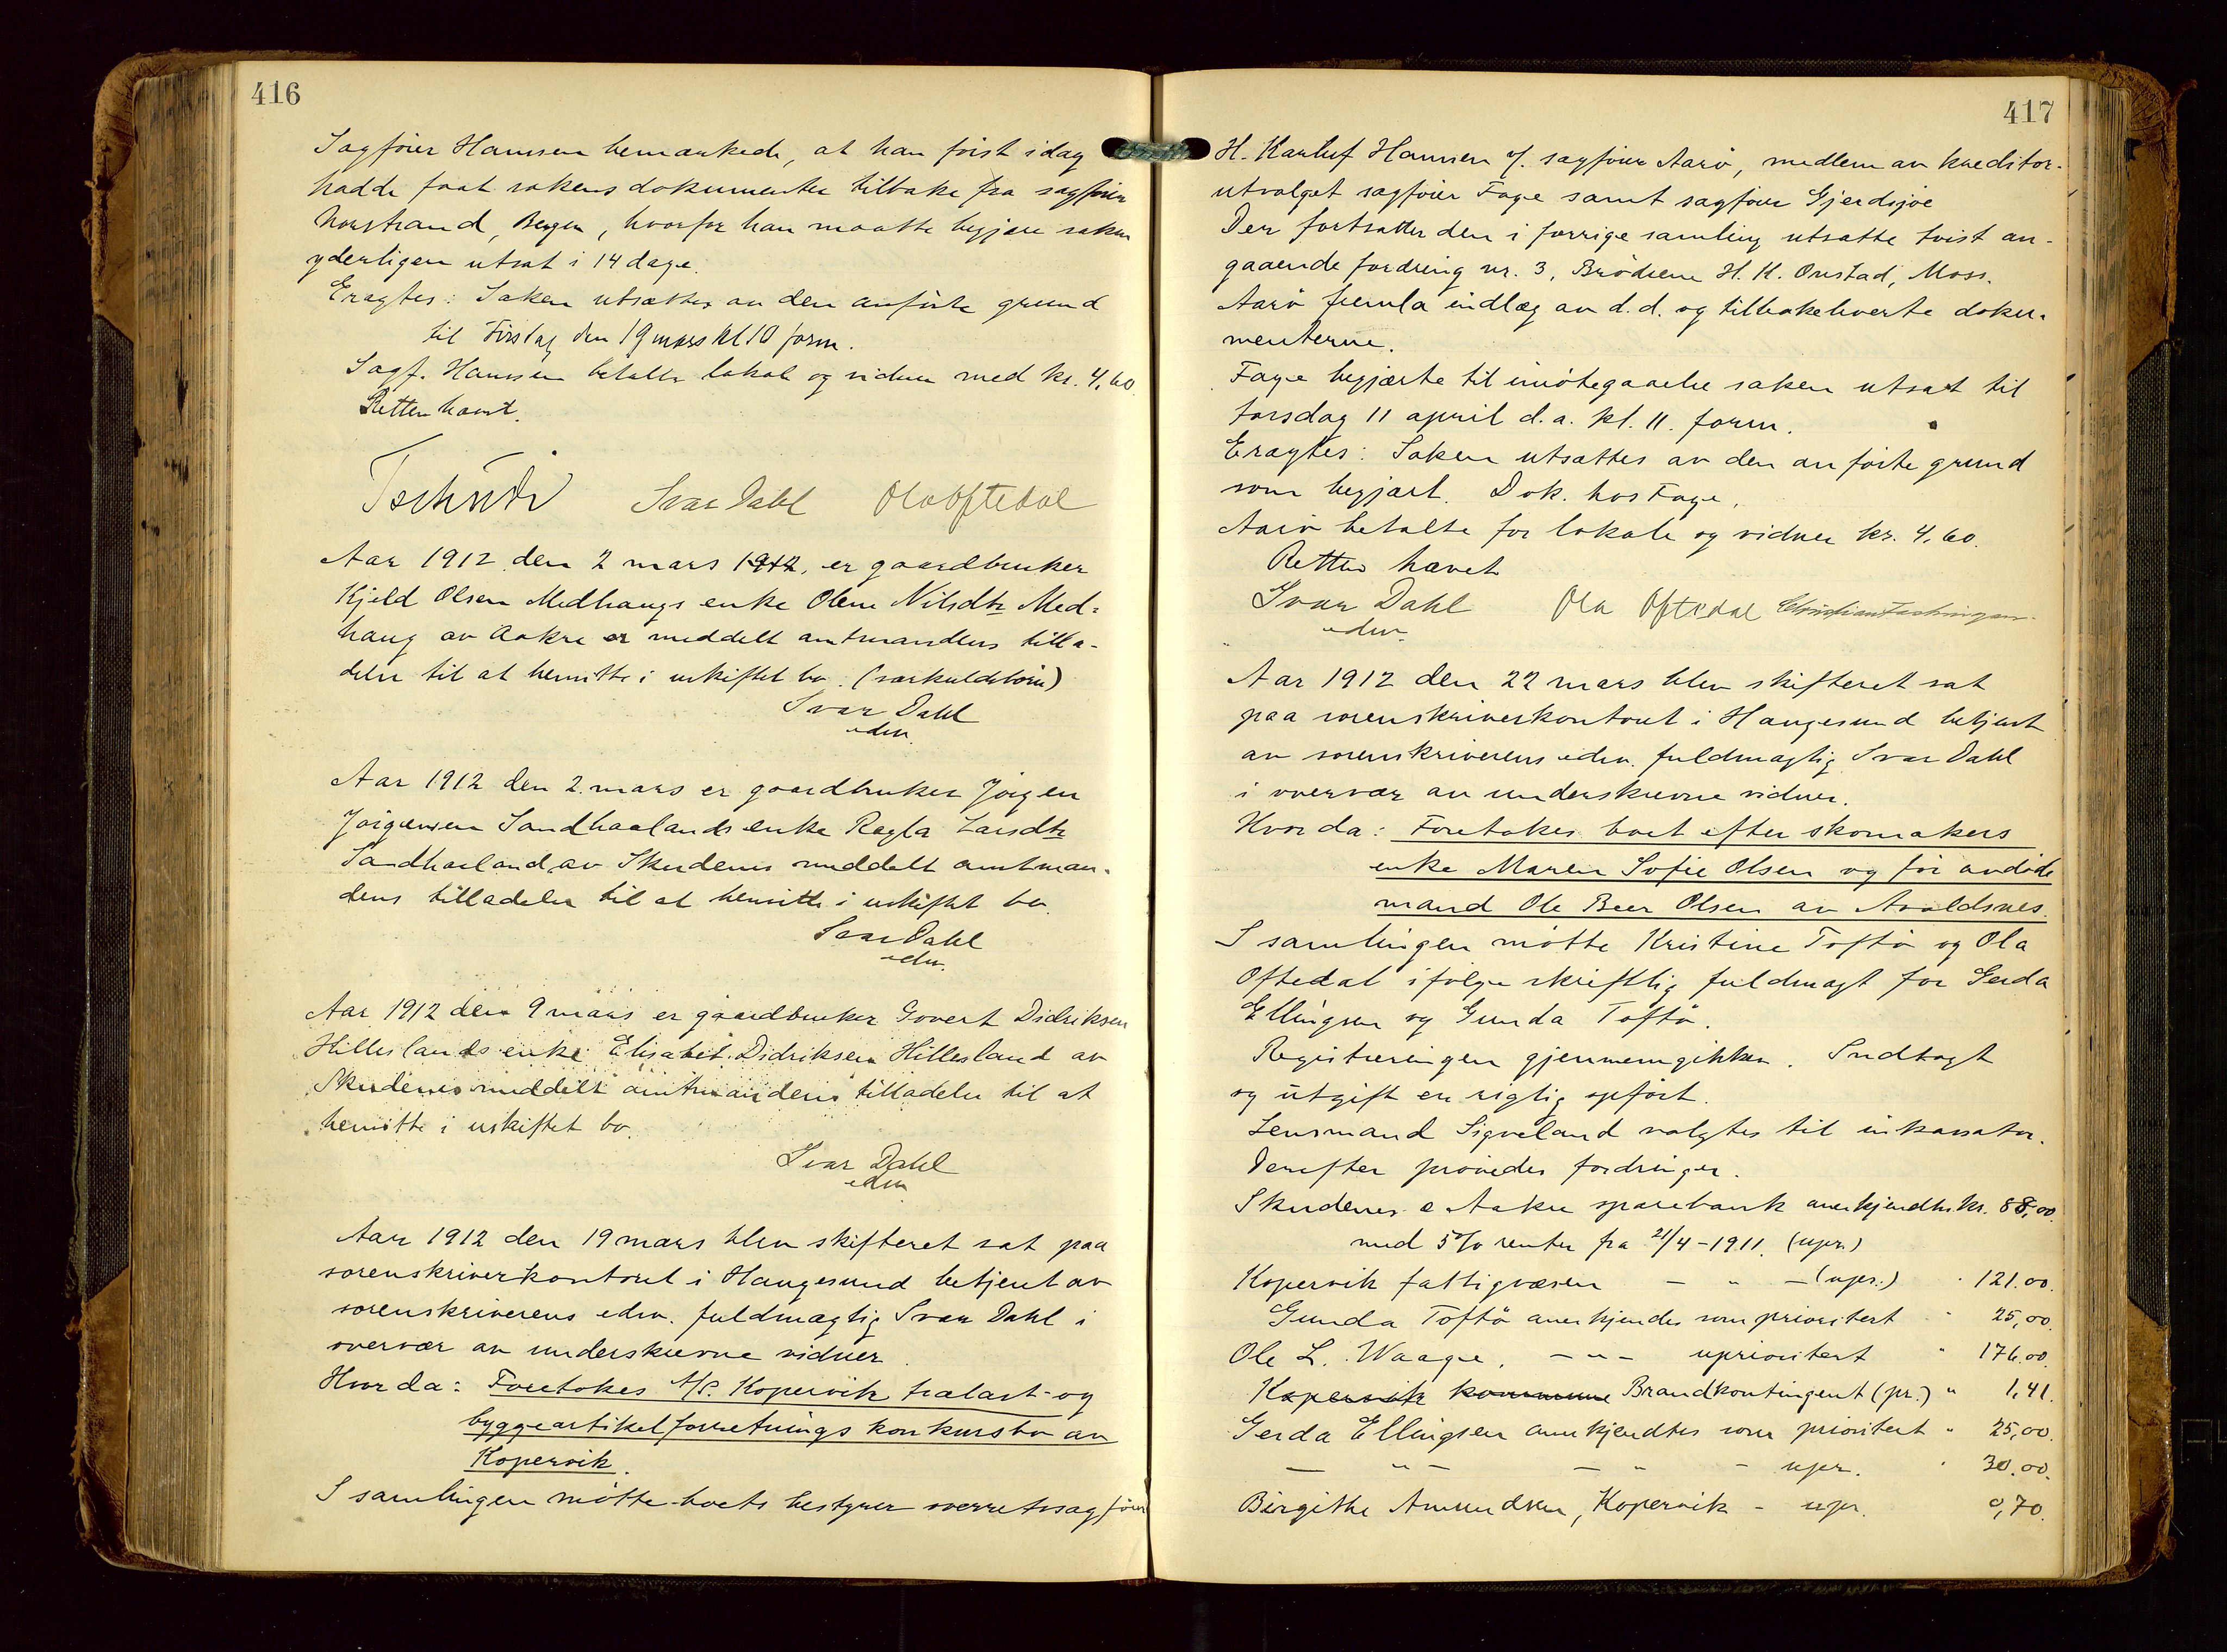 416
Sagfører Hanssen bemærkede, at han først idag
hadde faat sakens dokumenter tilbake fra sagfører
Norstrand, Bergen, hvorfor han maatte begjære saken
yderligere utsat i 14 dage.
Eragtes: Saken utsættes av den anførte grund
til Tirsdag den 19 mars kl 10 form.
Sagf. Hanssen betalte lokale og vidner med kr. 4,60.
Retten hævet.
Tschudi Ivar Dahl Ola Oftedal
Aar 1912 den 2 mars 1912, er gaardbruker
Kjeld Olsen Medhaugs enke Olene Nilsdtr Med=
haug av Aakre er meddelt amtmandens tilla-
delse til at hensitte i uskiftet bo. (særkuldsbørn)
Ivar Dahl
edsv.
Aar 1912 den 2. mars er gaardbruker Jørgen
Jørgensen Sandhaalands enke Ragla Larsdtr
Sandhaaland av Skudenes meddelt amtman-
dens tilladelse til at hensitte i uskiftet bo.
Ivar Dahl
edsv.
Aar 1912 den 9 mars er gaardbruker Govert Didriksen
Hilleslands enke Elisabet Didriksen Hillesland av
Skudenes meddelt amtmandens tilladelse til at
hensitte i uskiftet bo.
Ivar Dahl
edsv.
Aar 1912 den 19 mars blev skifteret sat paa
sorenskriverkontoret i Haugesund betjent av
sorenskriverens edsv. fuldmægtig Ivar Dahl i
overvær av underskrevne vidner.
Hvorda: Foretokes A/S. Kopervik trælast- og
byggeartikelforretnings konkursbo av
Kopervik.
I samlingen møtte boets bestyrer overretssagfører
417
H. Karluf Hanssen v. sagfører Aarø, medlem av kreditor-
utvalget sagfører Fage samt sagfører Gjerdsjøe
Der fortsattes den i forrige samling utsatte tvist an-
gaaende fordring nr. 3, Brødrene H. K. Onstad, Moss.
Aarø fremla indlæg av d.d. og tilbakeleverte doku-
menterne.
Fage begjærte til imøtegaaelse saken utsat til
torsdag 11 april d.a. kl. 11. form.
Eragtes: Saken utsættes av den anførte grund
som begjært. Dok. hos Fage.
Aarø betalte for lokale og vidner kr. 4,60.
Retten hævet
Ivar Dahl Ola Oftedal Christian
edsv.
Aar 1912 den 22 mars blev skifteret sat
paa sorenskriverkontoret i Haugesund betjent
av sorenskriverens edsv. fuldmægtig Ivar Dahl
i overvær av underskrevne vidner.
Hvorda: Foretokes boet efter skomakers
enke Maren Sofie Olsen og før avdøde
mand Ole Beer Olsen av Avaldsnes.
I samlingen møtte Kristine Toftø og Ola
Oftedal ifølge skriftlig fuldmagt for Gerda
Ellingsen og Gunda Toftø.
Registreringen gjennemgikkes. Indtægt
og utgift er rigtig opført.
Lensmand Sigveland valgtes til inkassator.
Derefter prøvedes fordringer.
Skudenes & Aakre sparebank anerkjendtes kr. 88,00.
med 5% renter fra 21/4-1911. (upr.)
Kopervik fattigvæsen — " — (upr.) " 121.00.
Gunda Toftø anerkjendes som prioritert " 25,00.
Ole L. Waage, — " — uprioritert " 176.00.
Kopervik kommune Brandkontingent (pr.) " 1,41.
Gerda Ellingsen anerkjendtes som prioritert " 25,00.
— " — — " — upr. " 30.00.
Birgithe Amundsen, Kopervik - upr. 0,70.